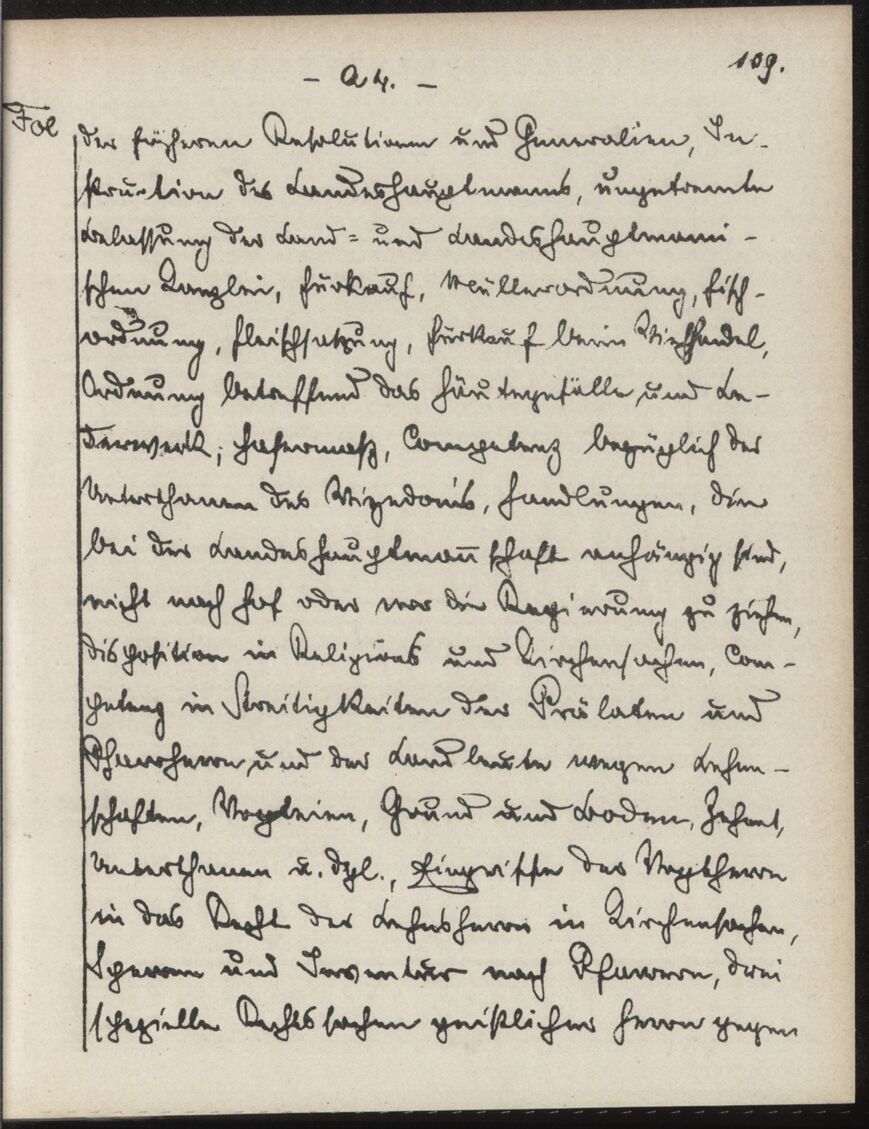 109.
- A 4. -
Fol
der früheren Resolutionen und Generalien, In-
struction des Landeshauptmanns, ungetrennte
Belassung der Land- und Landeshauptmanni-
schen Kanzlei, Fürkauf, Müllerordnung, Fisch-
ordnung, Fleischsatzung, Fürkauf beim Viehhandel,
Ordnung betreffend das Häutegefälle und Le-
derwerk, Hafermaß, Competenz bezüglich der
Unterthanen des Vizedoms, Handlungen, die
bei der Landeshauptmannschaft anhängig sind,
nicht nach Hof oder vor die Regierung zu ziehen,
Disposition in Religions und Kirchensachen, Com-
petenz in Streitigkeiten der Prälaten und
Pfarrherrn und der Landleute wegen Lehen-
schaften, Vogteien, Grund und Boden, Zehent,
Unterthanen u. dgl., Eingriffe der Vogtherrn
in das Recht der Lehensherrn in Kirchensachen,
Sperren und Inventur nach Pfarrern, drei
spezielle Rechtssachen geistlicher Herrn gegen